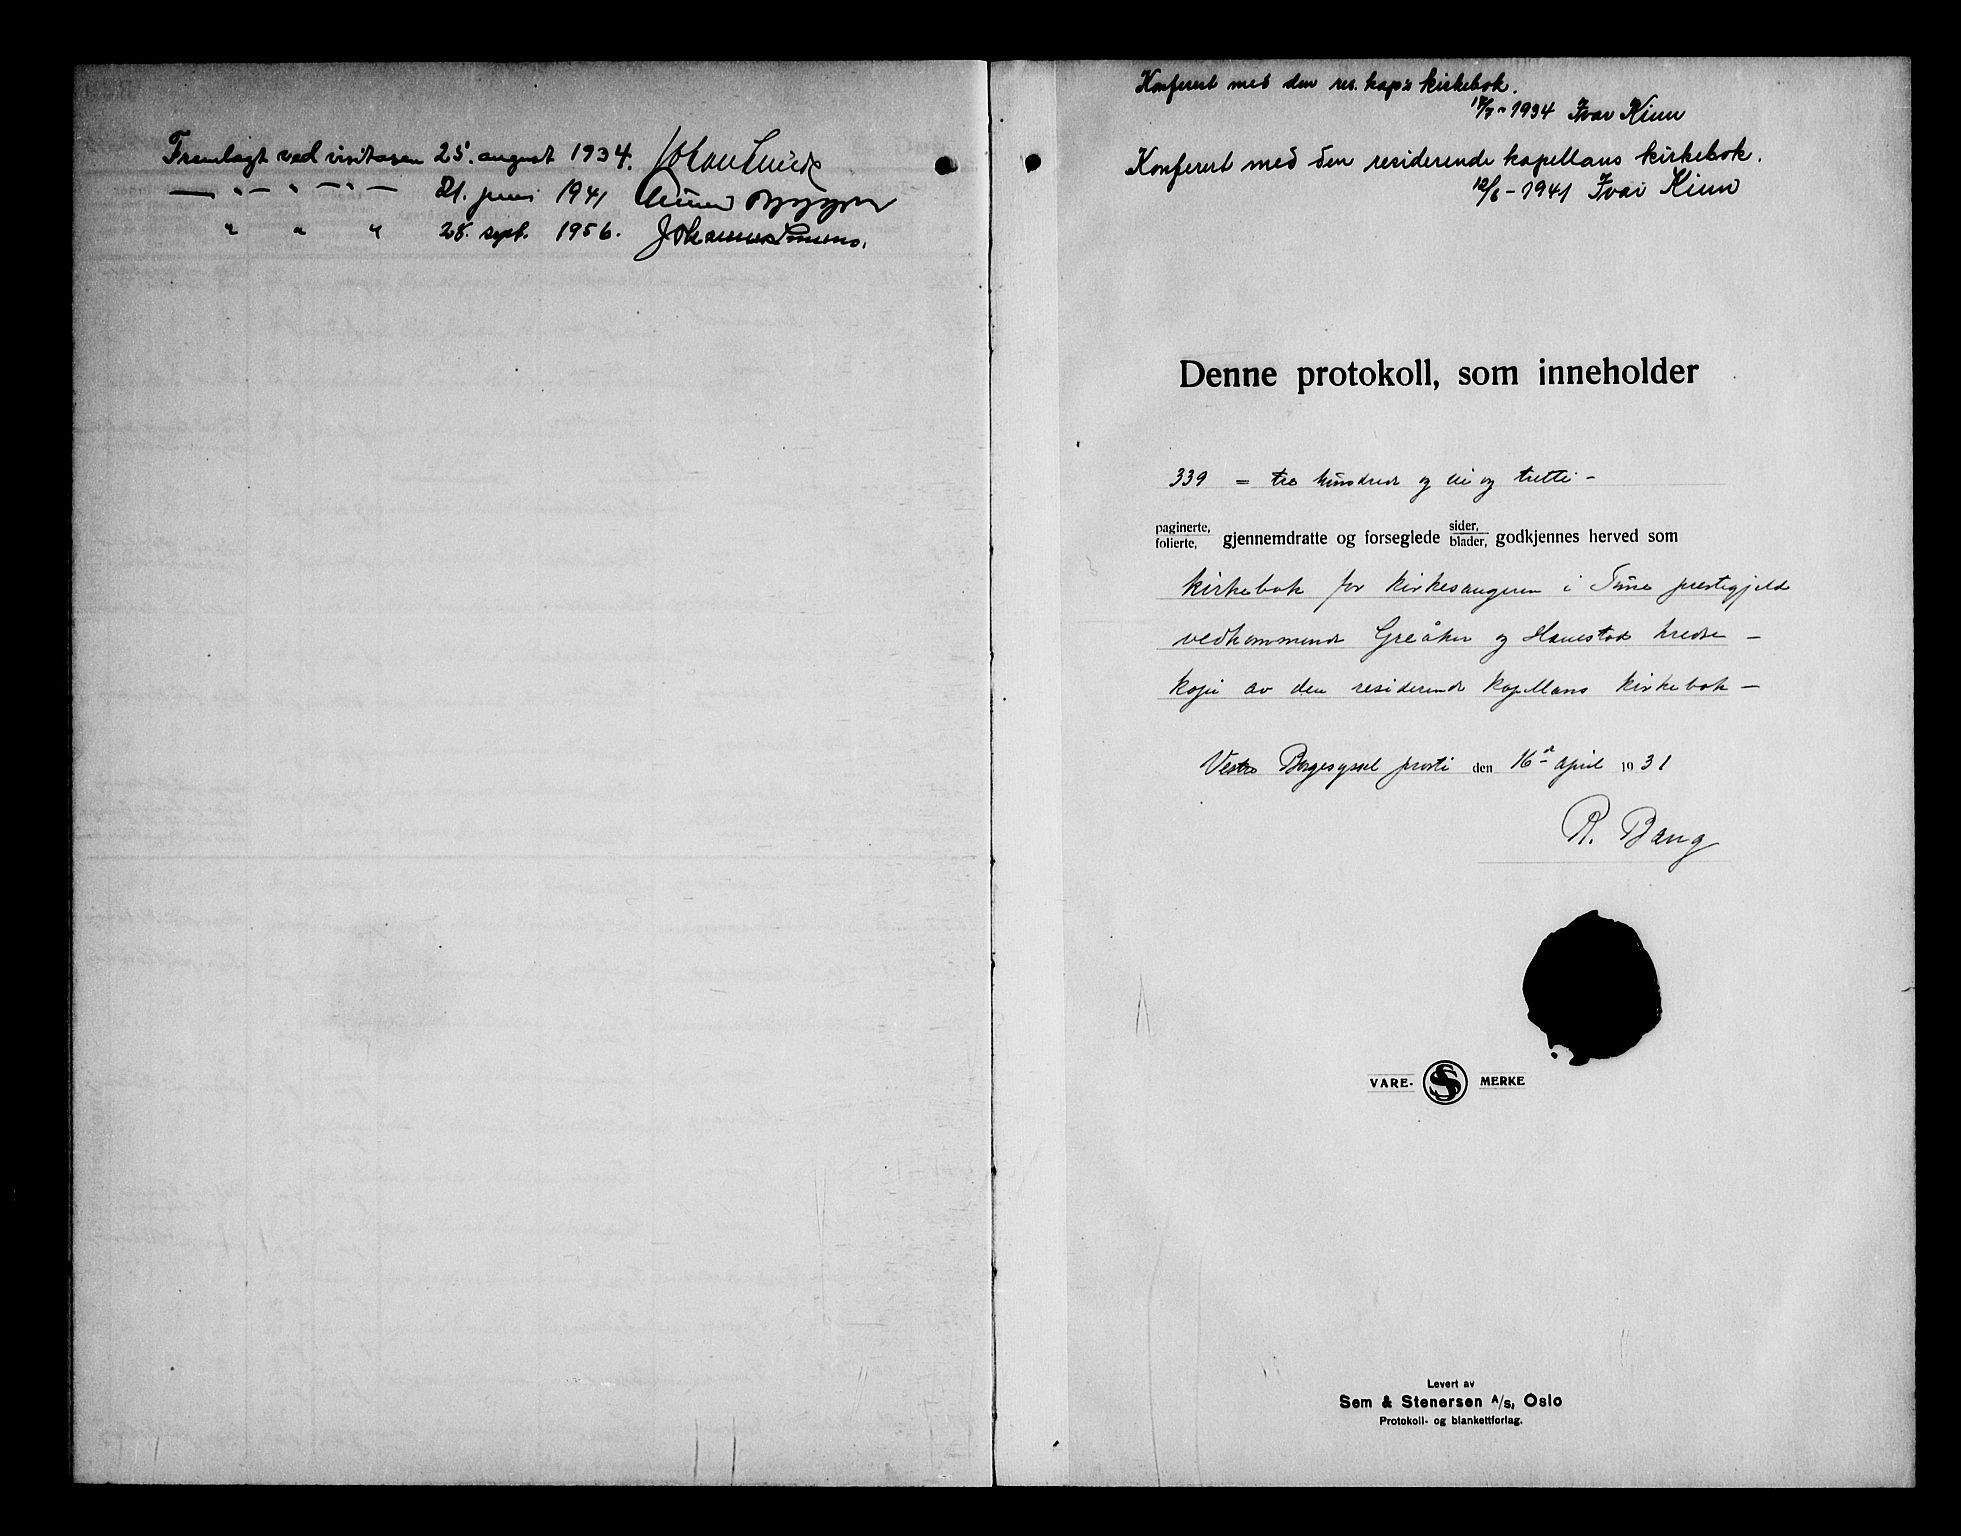 Fremlagt ved visitasen 25. august 1934. Johan Lunde
— " — " — " — 21. juni 1941
" " " 28. sept. 1956. Johannes Smemo.
Konferert med den res. kap's kirkebok.
1934 Ivar Kinn
Konferert med den residerende kapellans kirkebok.
12/6 - 1941 Ivar Kinn
Denne protokoll, som inneholder
339 = tre hundrede og ni og tretti -
paginerte, folierte, gjennemdratte og forseglede sider, blader, godkjennes herved som
kirkebok for kirkesangeren i Tune prestegjeld
vedkommende Greåker og Hanestad kredse -
kopi av den residerende kapellans kirkebok -
Vestre Borgesyssel prosti den 16de april 1931
R. Bang
VARE- S MERKE
Levert av
Sem & Stenersen A/S, Oslo
Protokoll- og blankettforlag.